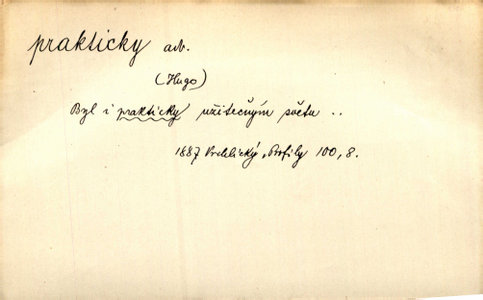 prakticky adv.
(Hugo)
Byl i prakticky užitečným světu ..
1887 Vrchlický, Profily 100, 8.